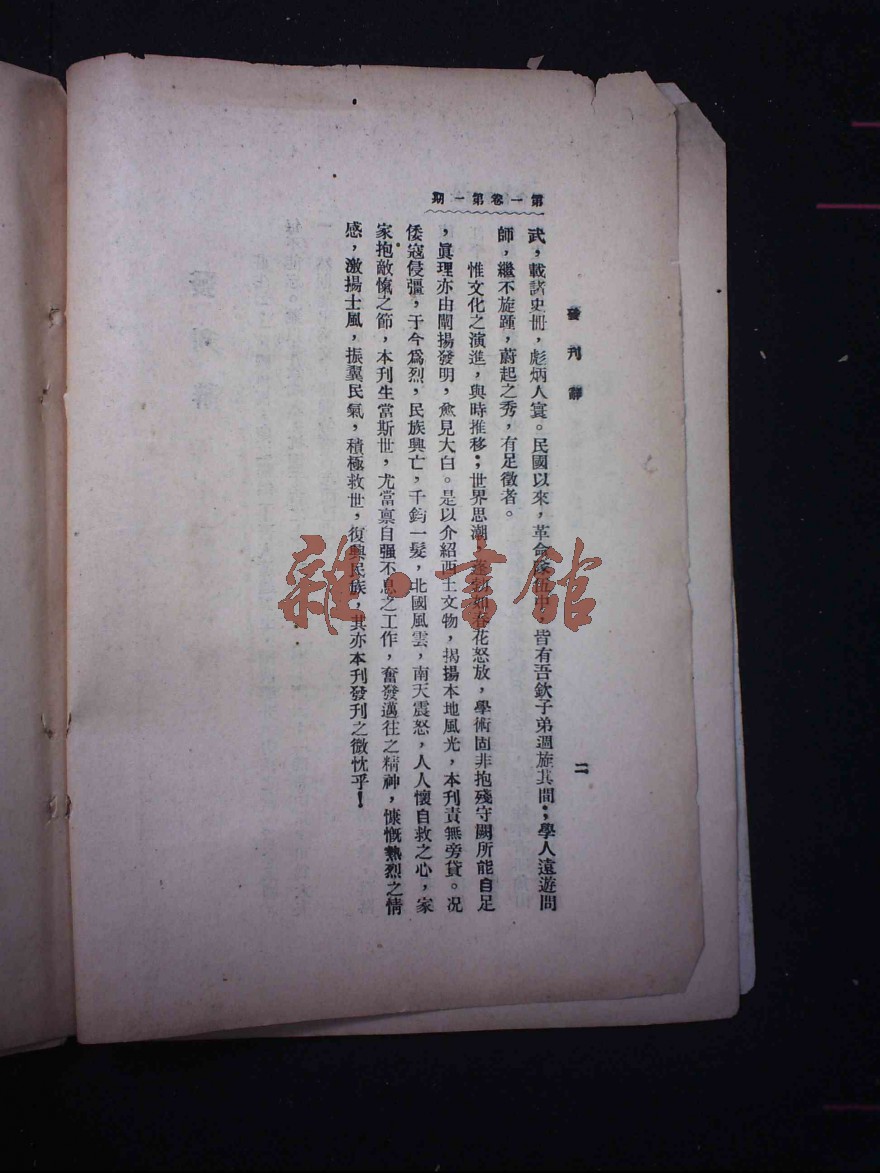 第一卷第一期
發刊辭
二
武，載諸史冊，彪炳人寰。民國以來，革命隊伍中，皆有吾欽子弟週旋其間；學人遠遊問
師，繼不旋踵，蔚起之秀，有足徵者。
惟文化之演進，與時推移；世界思潮，蓬勃如春花怒放，學術固非抱殘守闕所能自足
，眞理亦由闡揚發明，愈見大白。是以介紹西土文物，揭揚本地風光，本刊責無旁貸。况
倭寇侵彊，于今爲烈，民族興亡，千鈞一髮，北國風雲，南天震怒，人人懷自救之心，家
家抱敵愾之節，本刊生當斯世，尤當禀自强不息之工作，奮發邁往之精神，慷慨熱烈之情
感，激揚士風，振翼民氣，積極救世，復興民族，其亦本刊發刊之微忱乎！
雜·書館